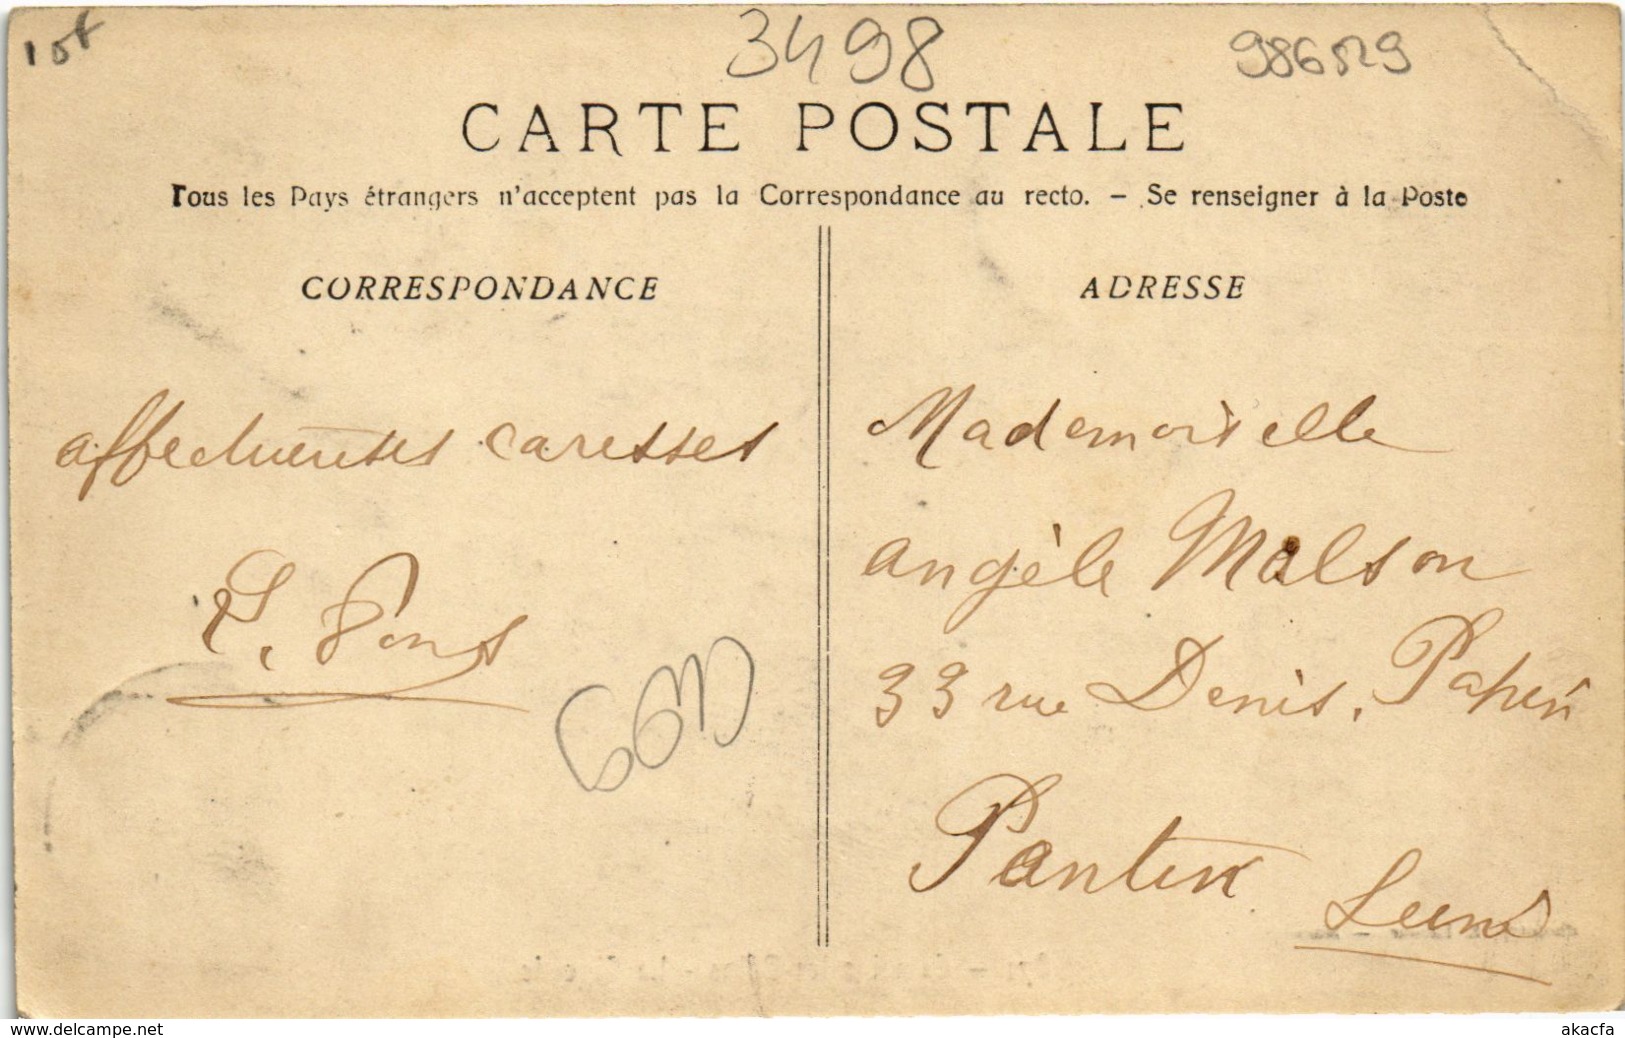 lot
3498
986529
CARTE POSTALE
Tous les Pays étrangers n'acceptent pas la Correspondance au recto. — Se renseigner à la Poste
CORRESPONDANCE
ADRESSE
affectueuses caresses
Pons
Mademoiselle
angèle Malson
33 rue Denis, Papin
Pantin
Seine
www.delcampe.net
akacfa